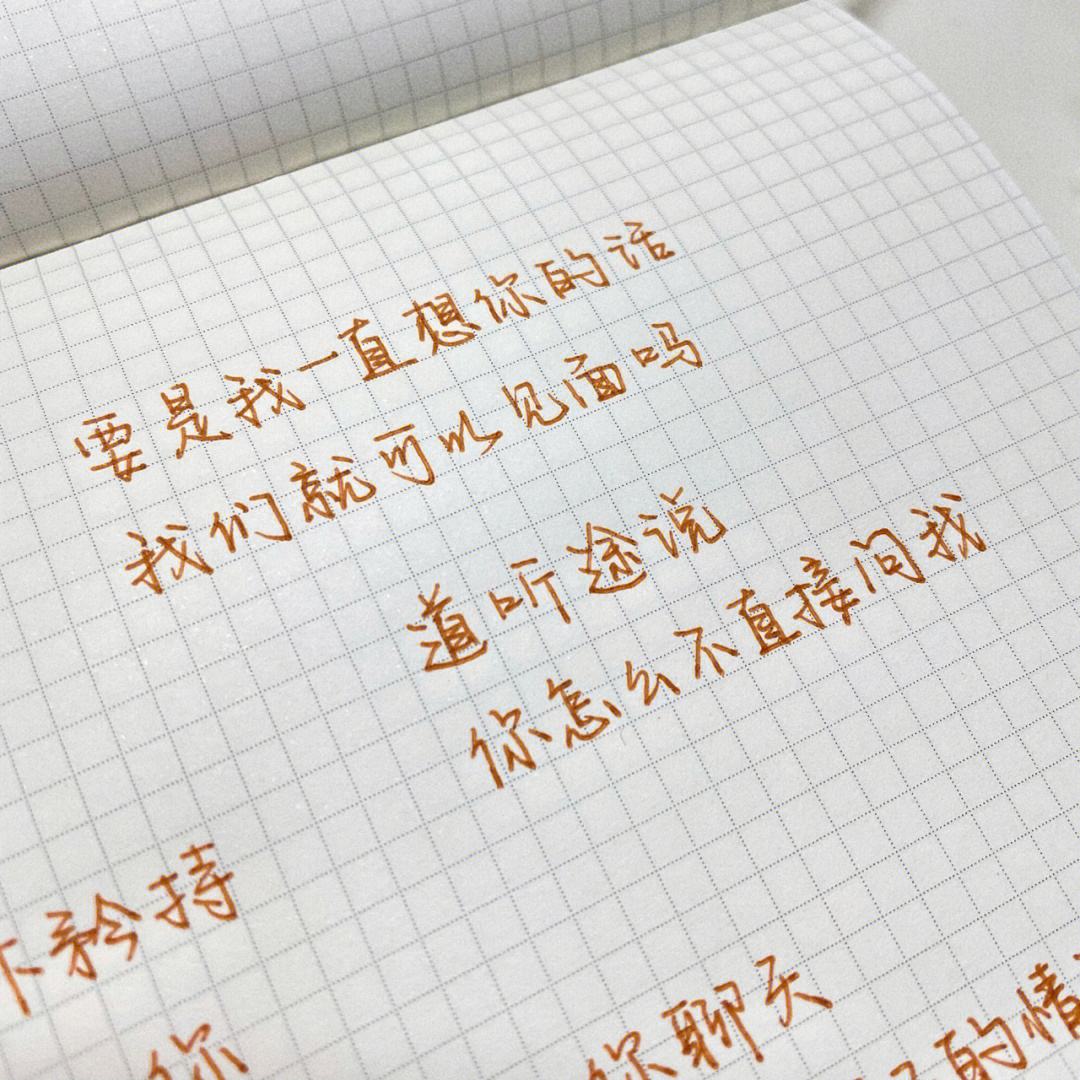 要是我一直想你的话
我们就可以见面吗
道听途说
你怎么不直接问我
下矜持
你
你聊天
的情